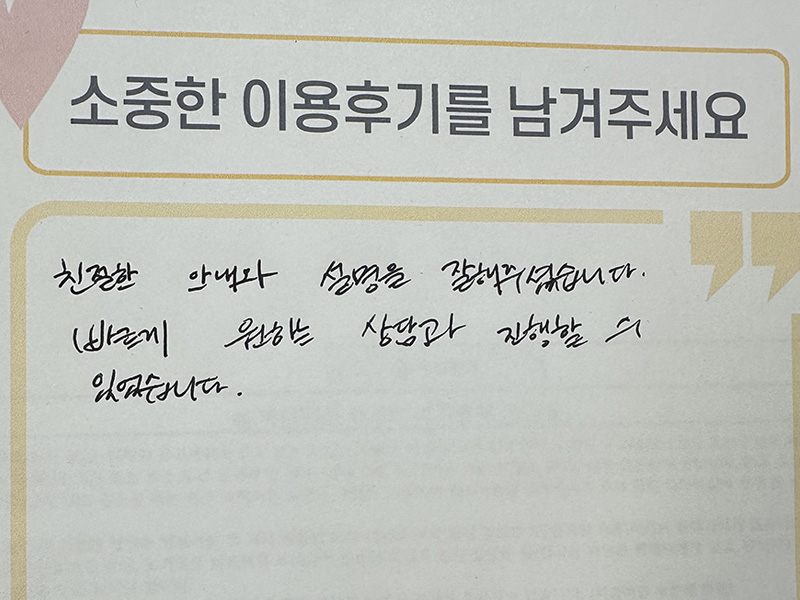 소중한 이용후기를 남겨주세요
친절한 안내와 설명을 잘해주셨습니다.
빠르게 원하는 상담과 진행할 수
있었습니다.